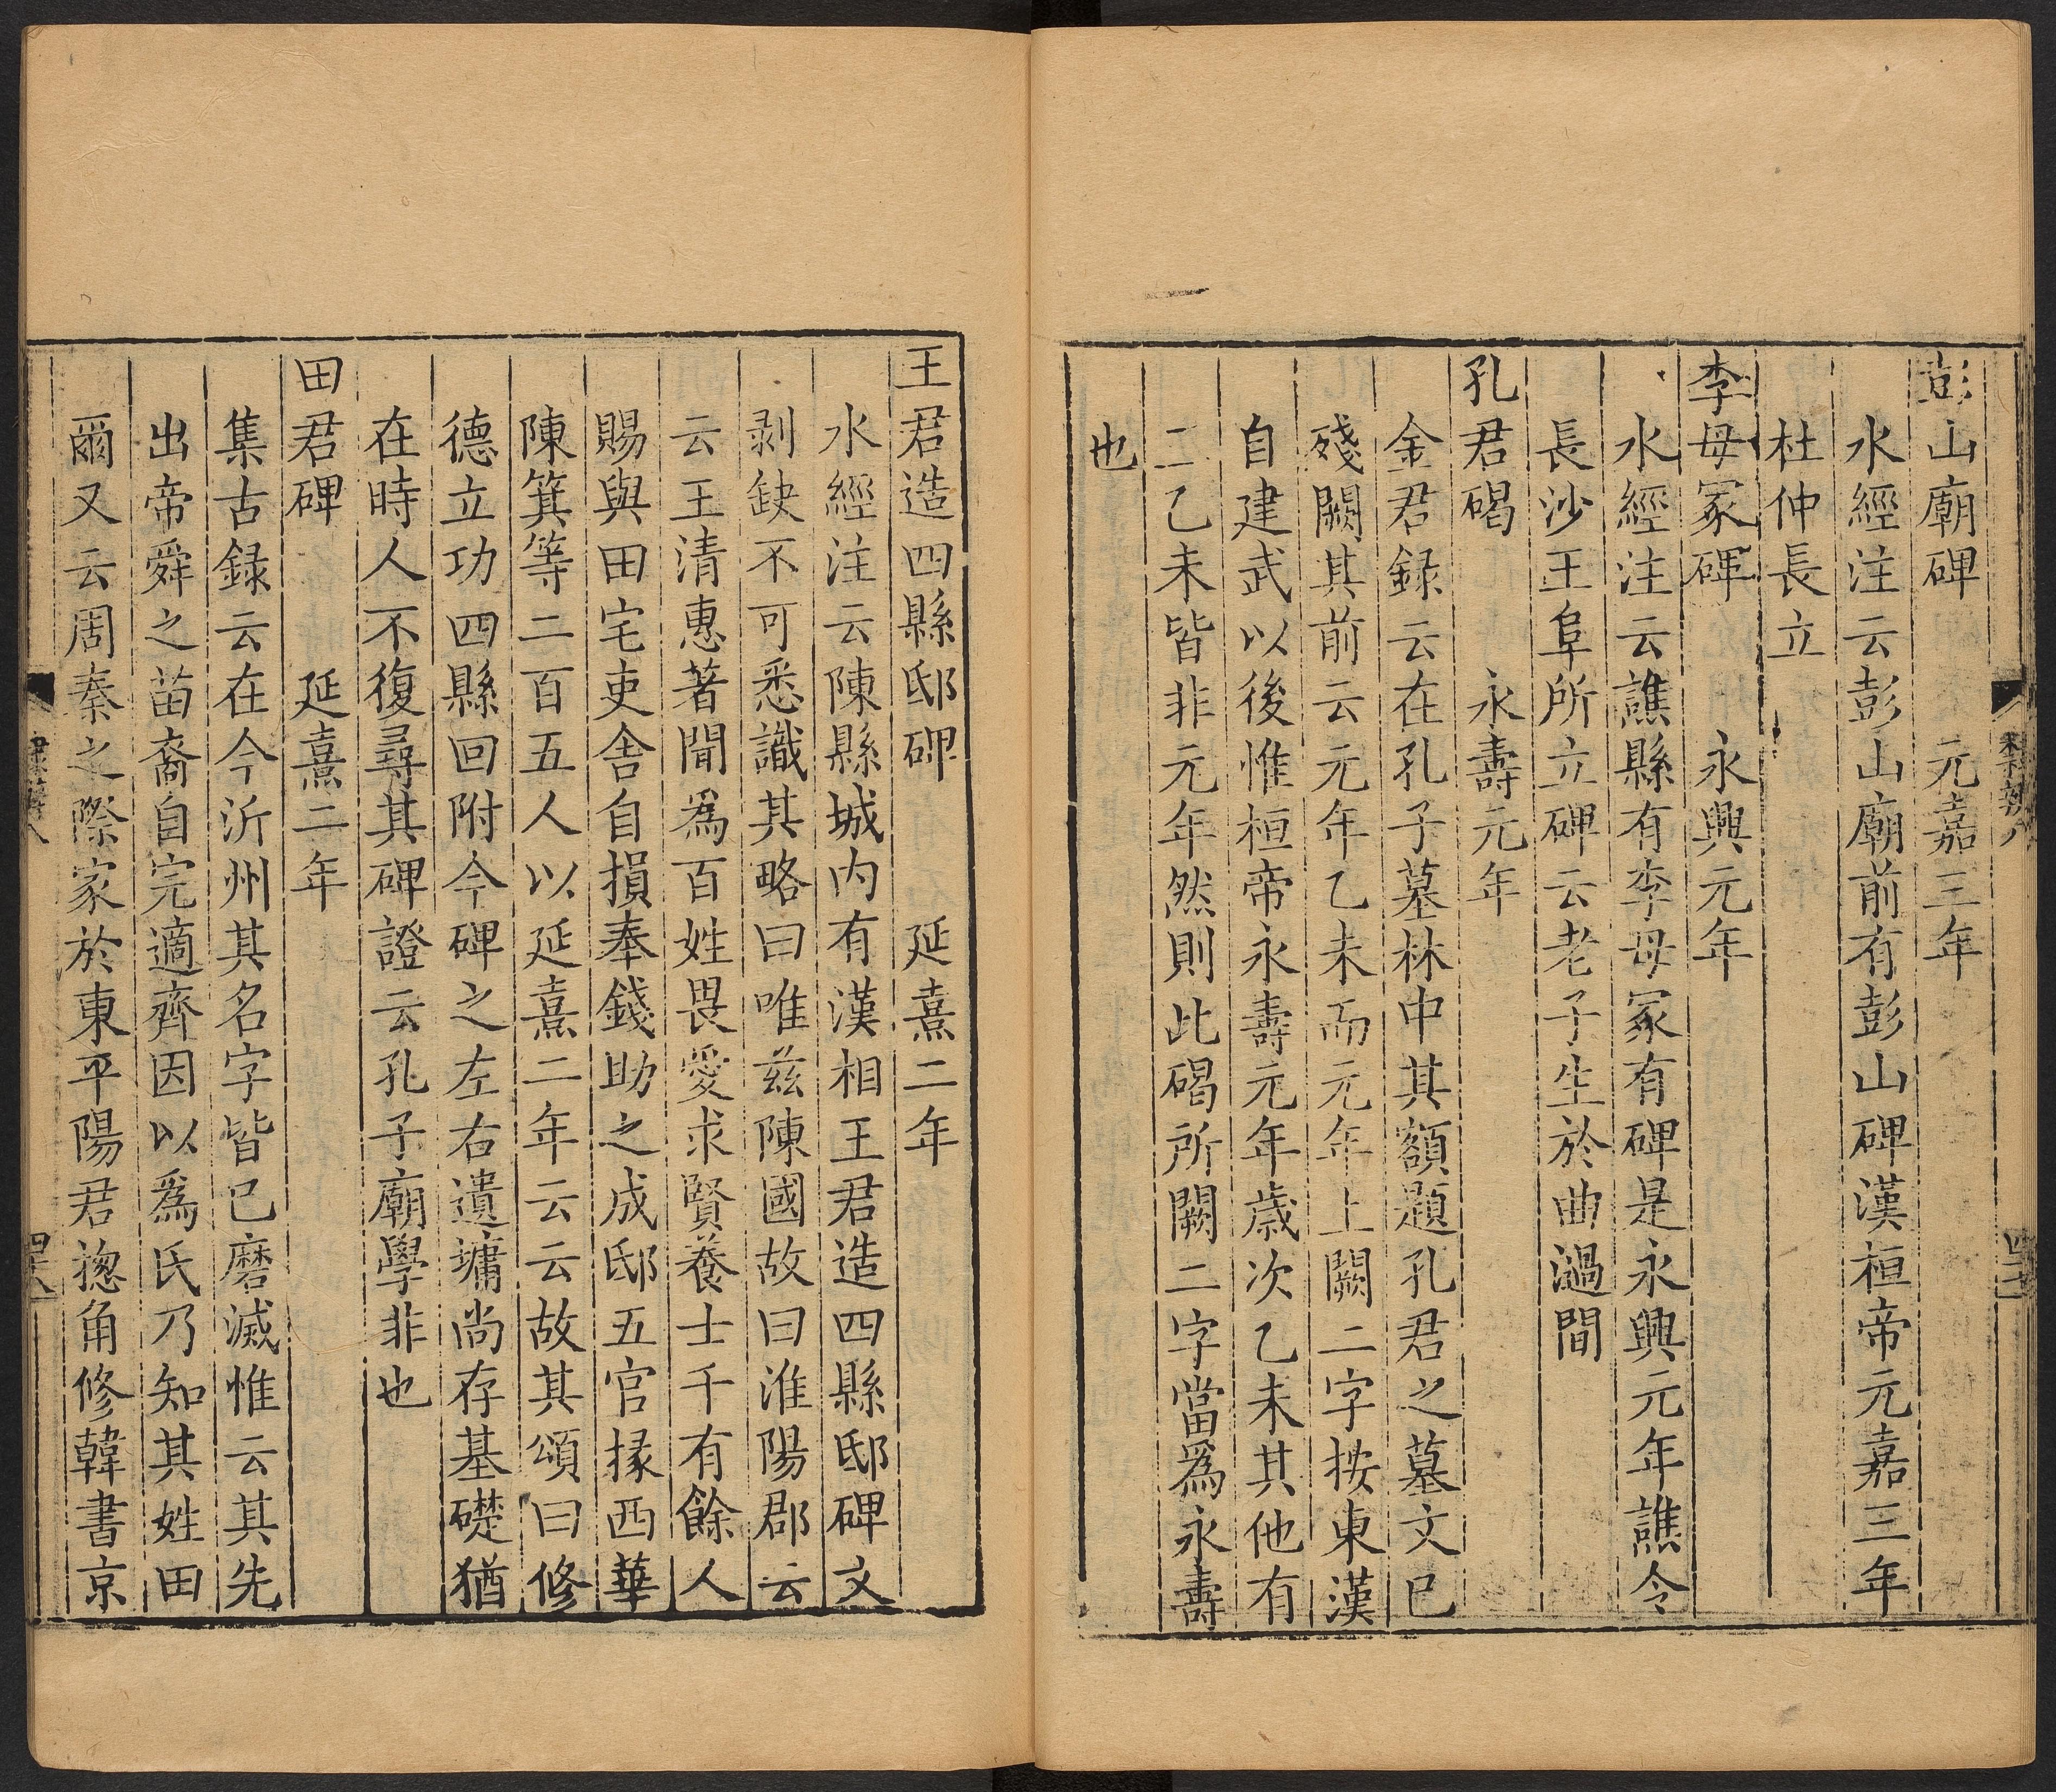 彭山廟碑 元嘉三年
水經注云彭山廟前有彭山碑漢桓帝元嘉三年
杜仲長立
李母冢碑 永興元年
水經注云譙縣有李母冢有碑是永興元年譙令
長沙王阜所立碑云老子生於曲濄間
孔君碣 永壽元年
金君録云在孔子墓林中其額題孔君之墓文已
殘闕其前云元年乙未而元年上闕二字按東漢
自建武以後惟桓帝永壽元年歲次乙未其他有
二乙未皆非元年然則此碣所闕二字當爲永壽
也
王君造四縣邸碑 延熹二年
水經注云陳縣城内有漢相王君造四縣邸碑文
剥缺不可悉識其略曰唯兹陳國故曰淮陽郡云
云王清惠著聞爲百姓畏愛求賢養士千有餘人
賜與田宅吏舍自損奉錢助之成邸五官掾西華
陳箕等二百五人以延熹二年云云故其頌曰修
德立功四縣回附今碑之左右遺墉尚存基礎猶
在時人不復尋其碑證云孔子廟學非也
田君碑 延熹二年
集古録云在今沂州其名字皆已磨滅惟云其先
出帝舜之苗裔自完適齊因以爲氏乃知其姓田
爾又云周秦之際家於東平陽君揔角修韓書京